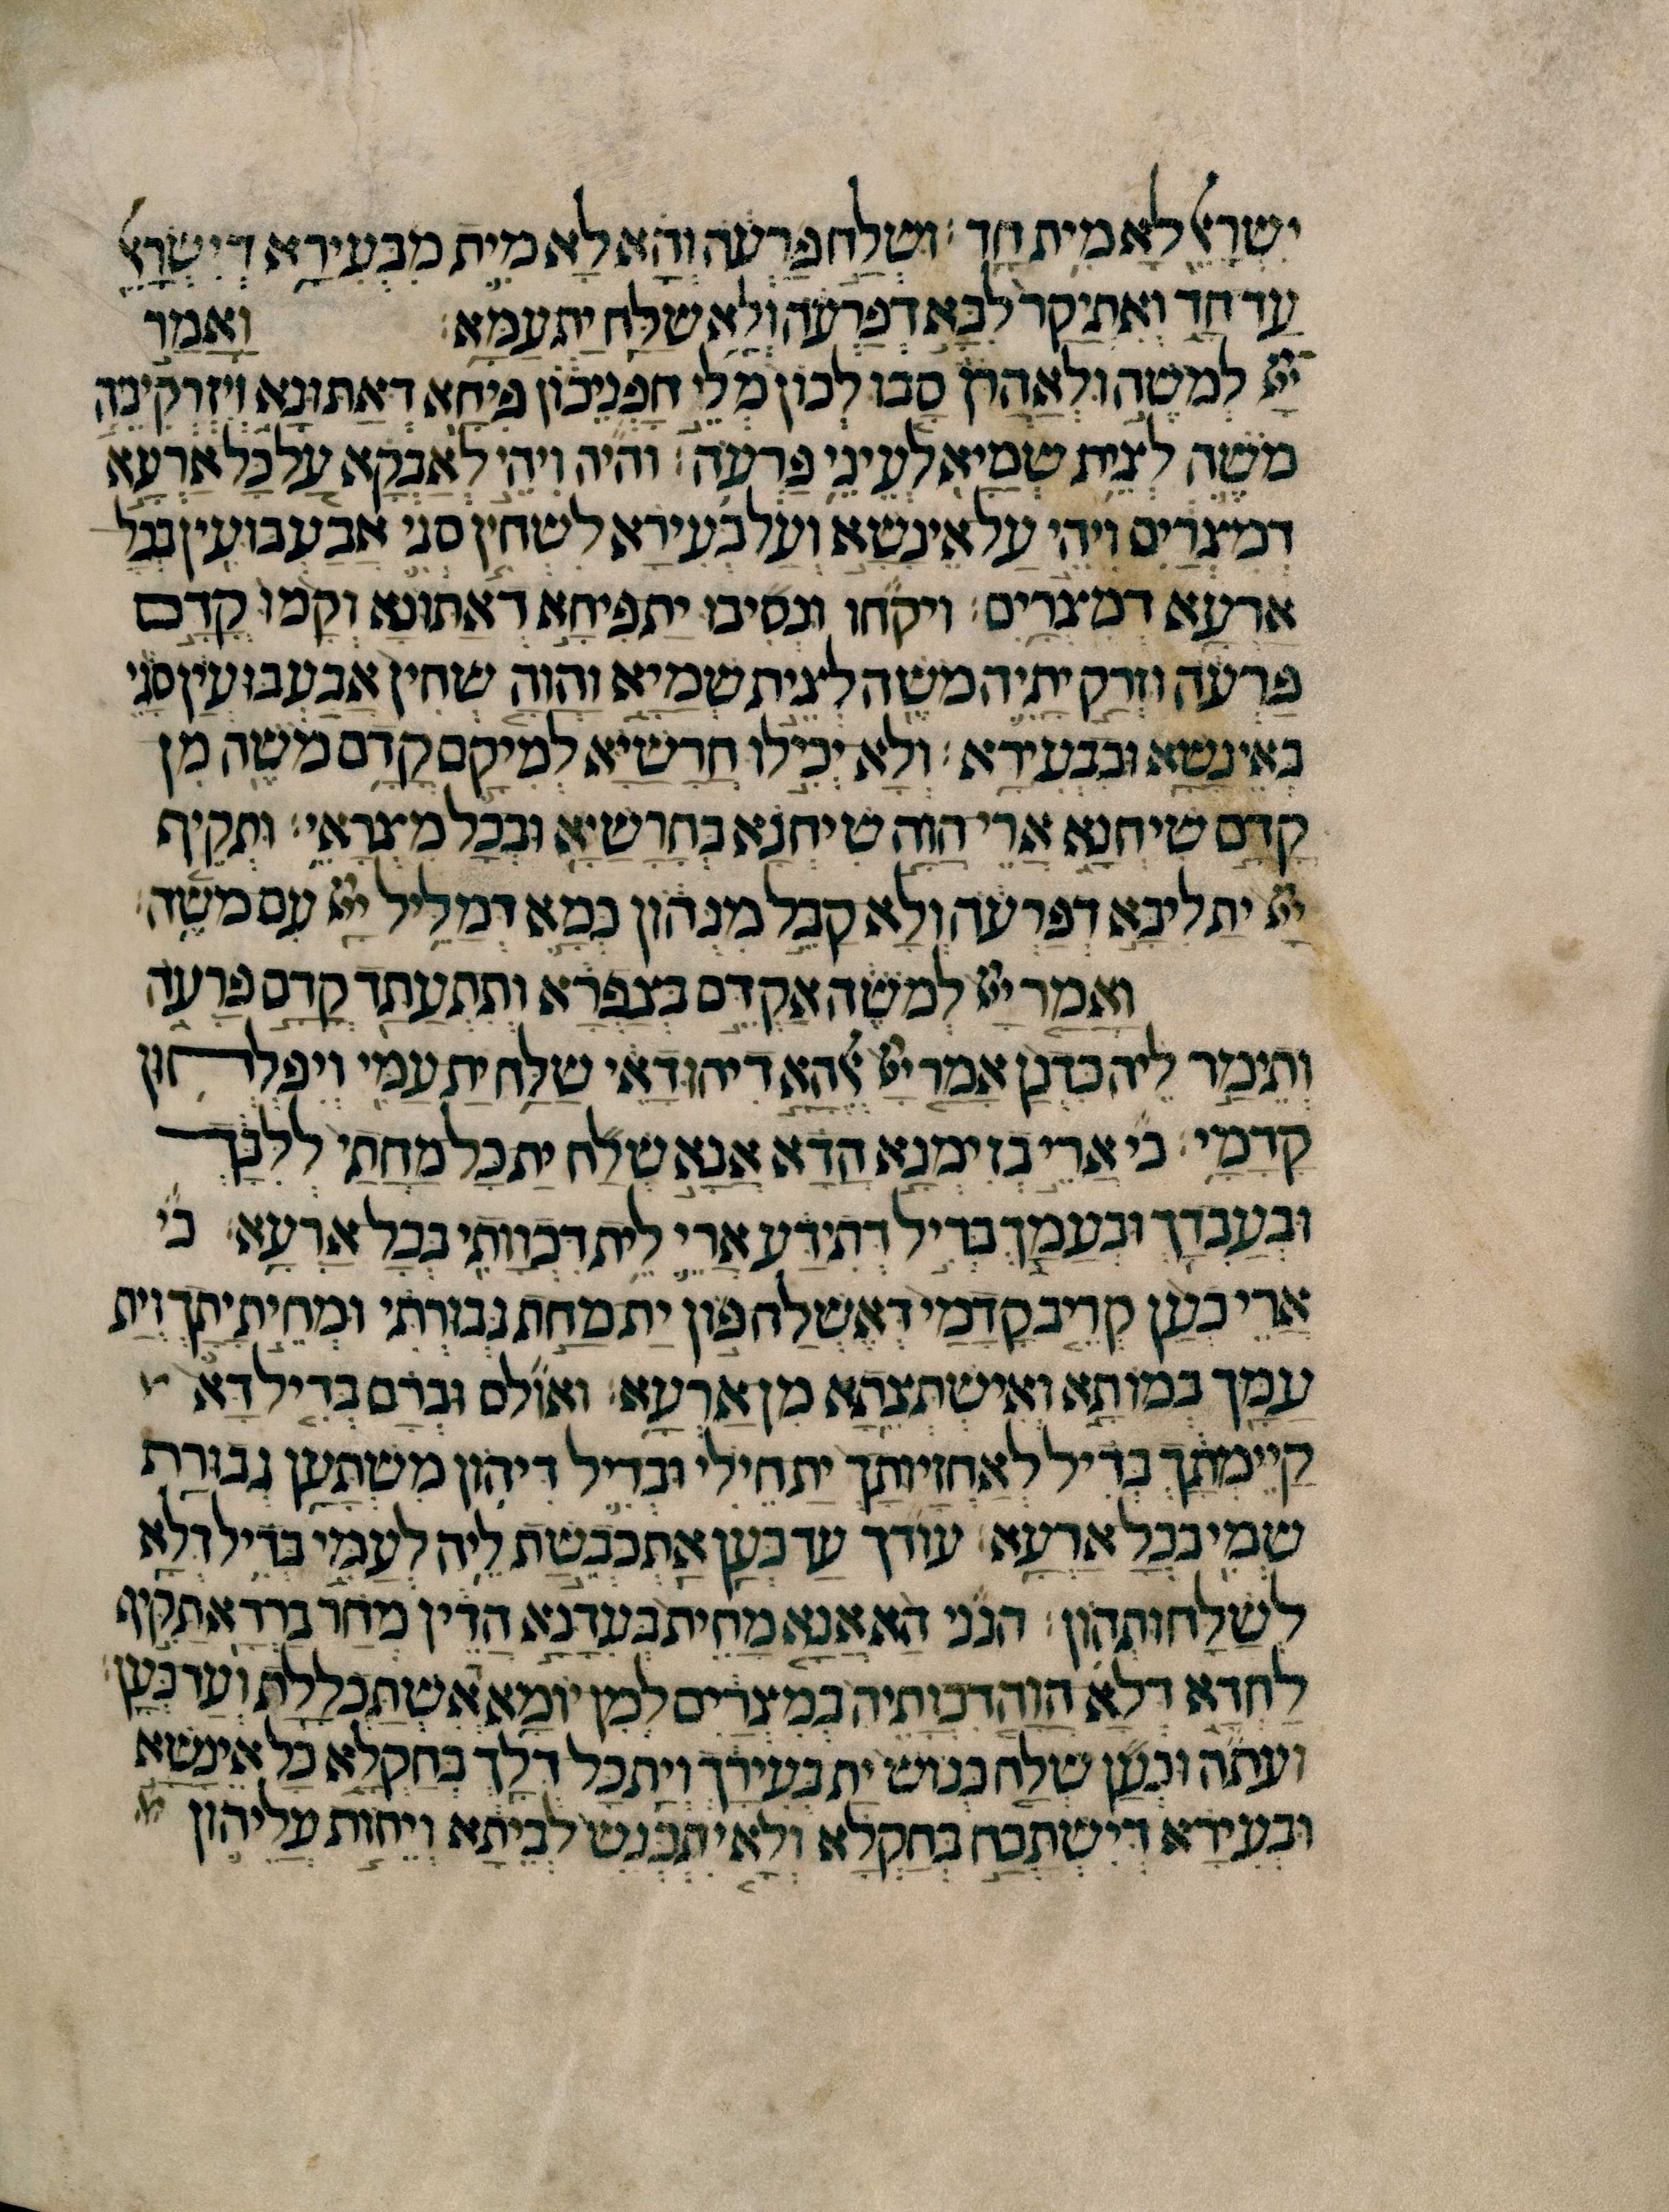 ישראל לא מית חד׃ ושלח פרעה והא לא מית מבעירא דישראל
עד חד ואתיקר לבא דפרעה ולא שלח ית עמא׃ ואמר
יי למשה ולאהרן סבו לכון מלי חפניכון פיחא דאתונא ויזרקינה
משה לצית שמיא לעיני פרעה׃ והיה ויהי לאבקא על כל ארעא
דמצרים ויהי על אינשא ועל בעירא לשחין סגי אבעבועין בכל
ארעא דמצרים׃ ויקחו ונסיבו ית פיחא דאתונא וקמו קדם
פרעה וזרק יתיה משה לצית שמיא והוה שחין אבעבועין סגי
באינשא ובבעירא׃ ולא יכילו חרשיא למיקם קדם משה מן
קדם שיחנא ארי הוה שיחנא בחרשיא ובכל מצראי׃ ותקיף
יי ית ליבא דפרעה ולא קבל מנהון כמא דמליל יי עם משה׃
ואמר יי למשה אקדם בצפרא ותתעתד קדם פרעה
ותימר ליה כדנן אמר יי אלהא דיהודאי שלח ית עמי ויפלחון
קדמי׃ כי ארי בזימנא הדא אנא שלח ית כל מחתי ללבך
ובעבדך ובעמך בדיל דתידע ארי לית דכותי בכל ארעא׃ כי
ארי כען קריב קדמי דאשלח פון ית מחת גבורתי ומחיתי יתך וית
עמך במותא ואישתצתא מן ארעא׃ ואולם וברם בדיל דא
קיימתך בדיל לאחזיותך ית חילי ובדיל דיהון משתען גבורת
שמי בכל ארעא׃ עודך עד כען את כבשת ליה לעמי בדיל דלא
לשלחותהון׃ הנני הא אנא מחית בעדנא הדין מחר ברדא תקיף
לחדא דלא הוה דכותיה במצרים למן יומא אשתכללת ועד כען׃
ועתה וכען שלח כנוש ית בעירך וית כל דלך בחקלא כל אינשא
ובעירא דישתכח בחקלא ולא יתכנש לביתא ויחות עליהון